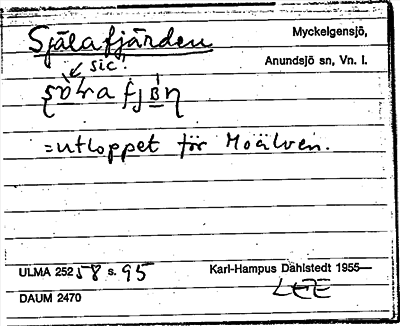 Själafjärden
Myckelgensjö,
Anundsjö sn, Vn. l.
sic!
= utloppet för Moälven.
ULMA 25258 s. 95
Karl-Hampus Dahlstedt 1955—
DAUM 2470